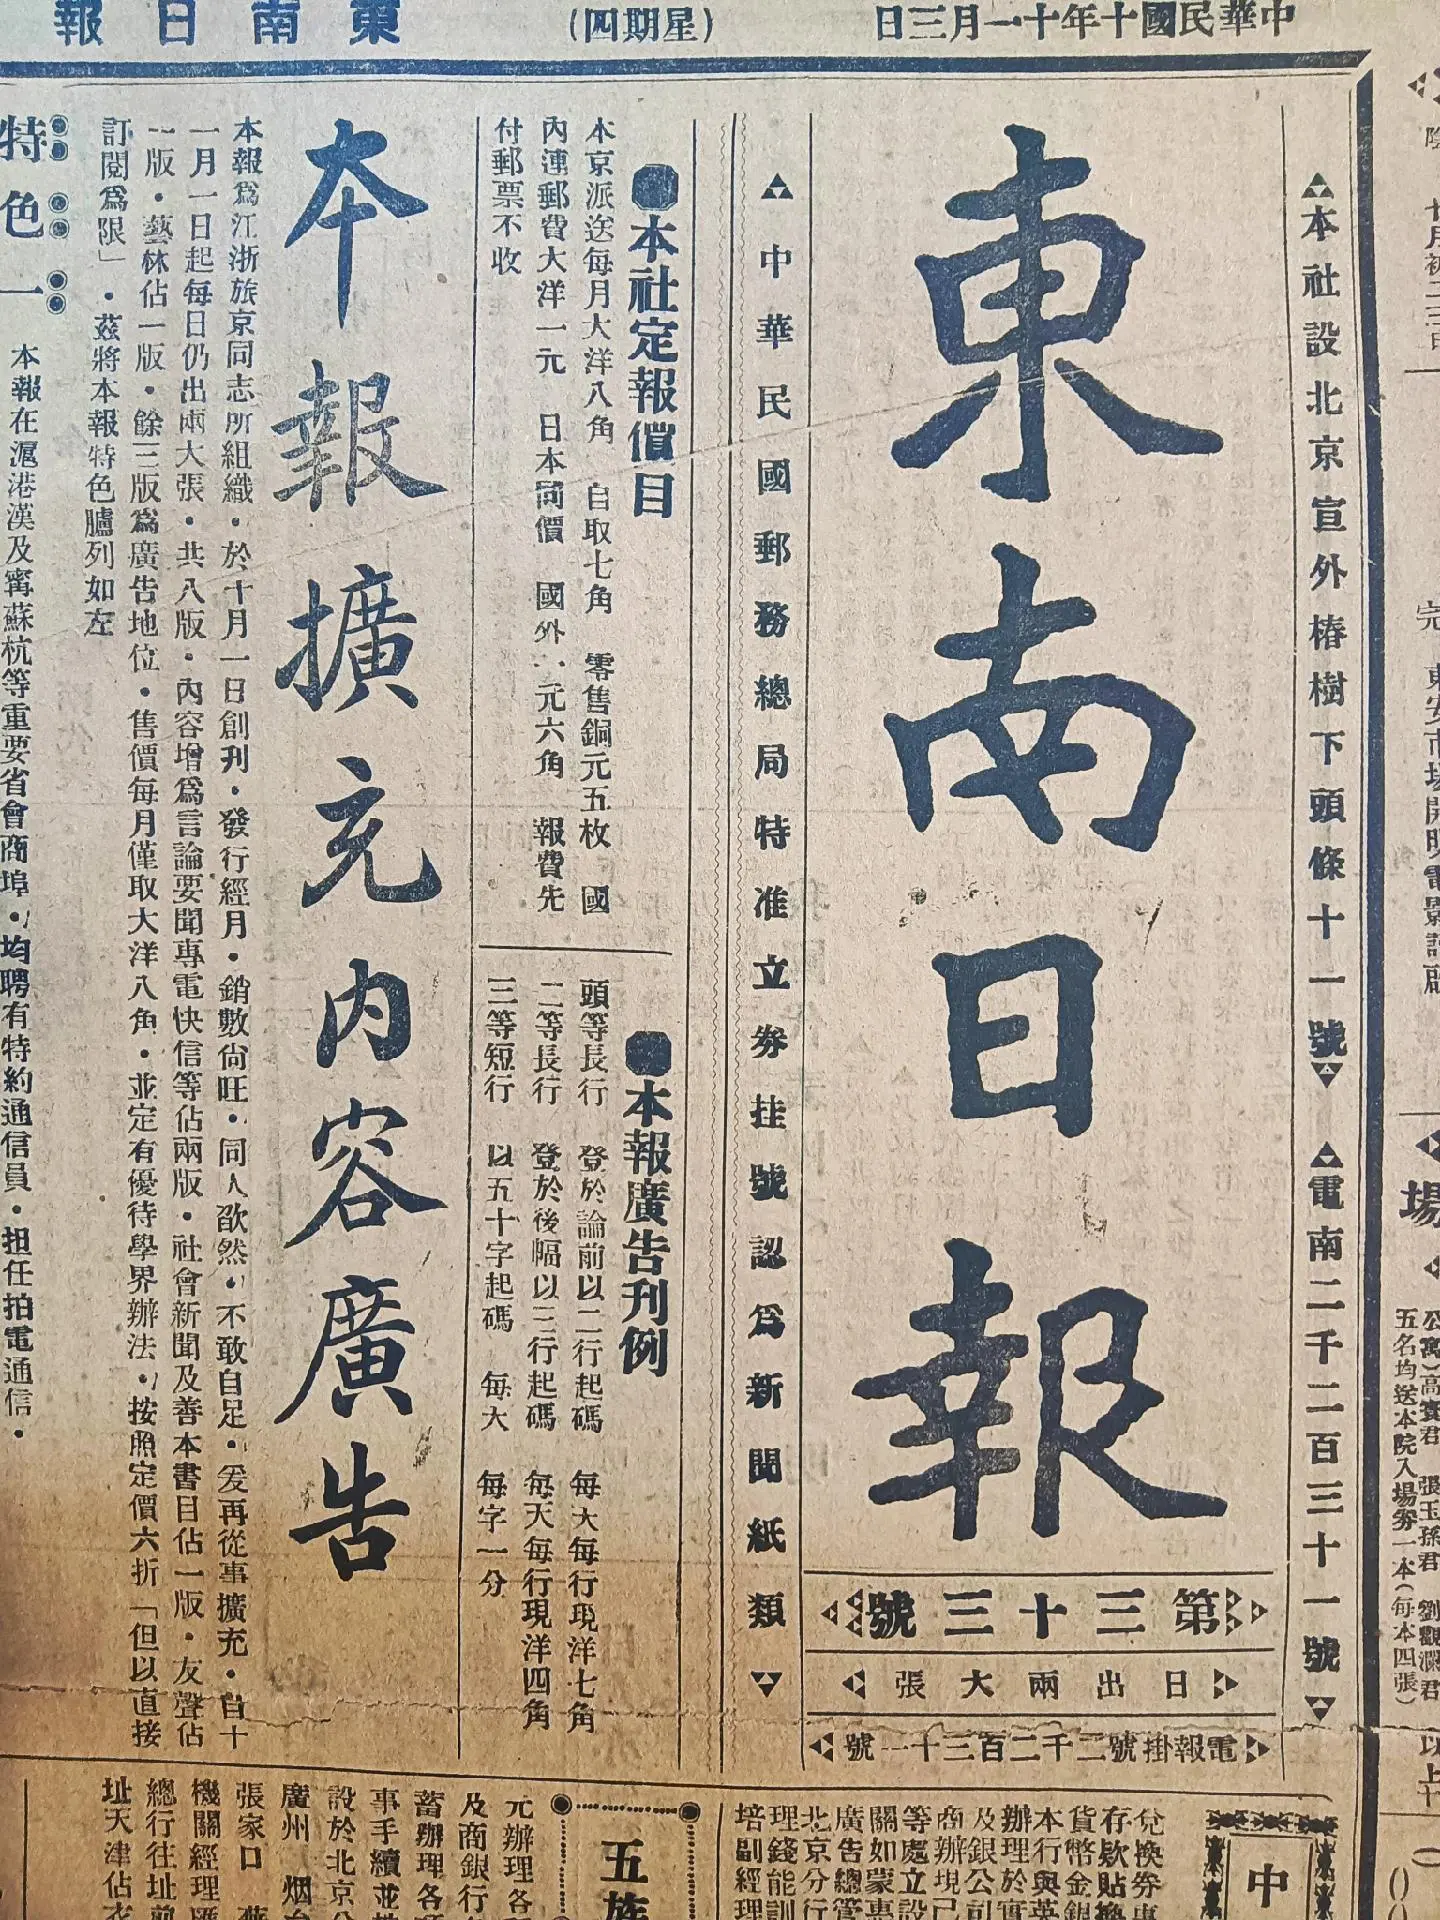 中華民國十年十一月三日
(星期四)
東南日報
本社設北京宣外椿樹下頭條十一號
電南二千二百三十一號
東南日報
第三十三號
日出兩大張
電報掛號二千二百三十一號
中華民國郵務總局特准立券挂號認爲新聞紙類
本社定報價目
本京派送每月大洋八角 自取七角 零售銅元五枚 國
內連郵費大洋一元 日本同價 國外一元六角 報費先
付郵票不收
本報廣告刊例
頭等長行 登於論前以二行起碼 每大每行現洋七角
二等長行 登於後幅以三行起碼 每天每行現洋四角
三等短行 以五十字起碼 每大 每字一分
本報擴充內容廣告
本報爲江浙旅京同志所組織・於十月一日創刋・發行經月・銷數尙旺・同人欿然・不敢自足・爰再從事擴充・自十
一月一日起每日仍出兩大張・共八版・內容增爲言論要聞專電快信等佔兩版・社會新聞及善本書目佔一版・友聲佔
一版・藝林佔一版・餘三版爲廣告地位・售價每月僅取大洋八角・並定有優待學界辦法・按照定價六折「但以直接
訂閱爲限」・茲將本報特色臚列如左
特色一
本報在滬港漢及甯蘇杭等重要省會商埠・均聘有特約通信員・担任拍電通信・
東安市場開明電影
場
張玉孫君 劉
五名均送本院入場劵一本(每本四張)
以上
中
兌換券
存欵貼換
貨幣金銀
本行與英
辦理於
及銀公司
商辦現已
等處立設
關如蒙惠
廣告總管
北京分行
理錢能訓
培副經理
五族
元辦理各
及商銀行
蓄辦理各
事手續並
設於北京
廣州 烟台
張家口
機關經理匯
總行往址前
址天津佔衣